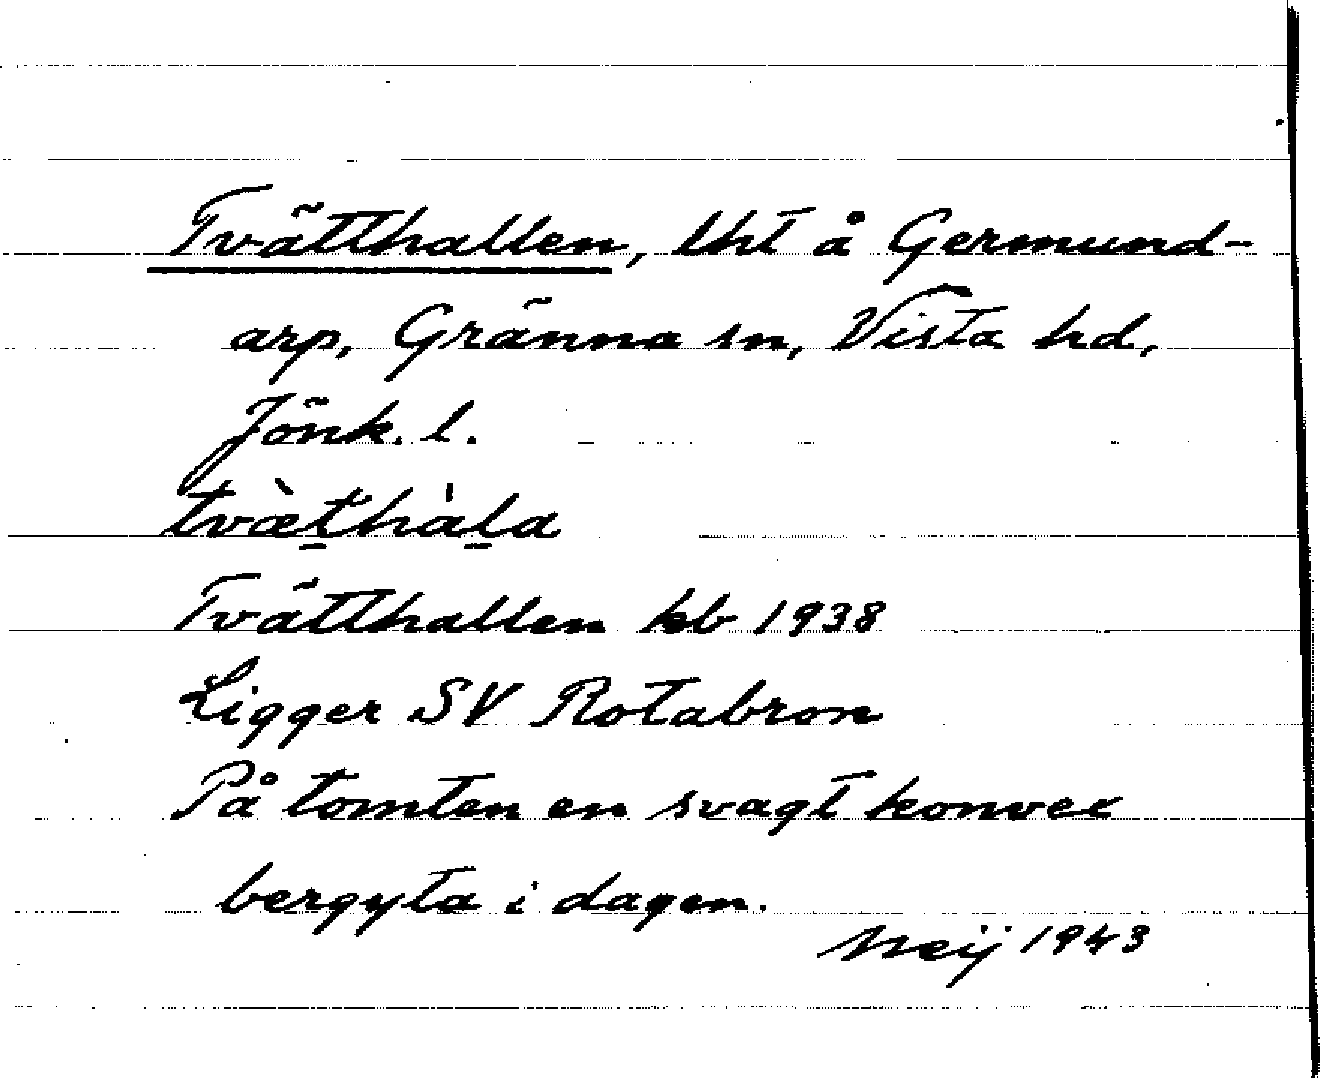 Tvätthallen, lht å Germund-
arp, Gränna sn, Vista hd,
Jönk. l.
tvæ̀t̠hàl̠a
Tvätthallen kb 1938
Ligger SV Rotabron
På tomten en svagt konvex
bergyta i dagen.
Neij 1943